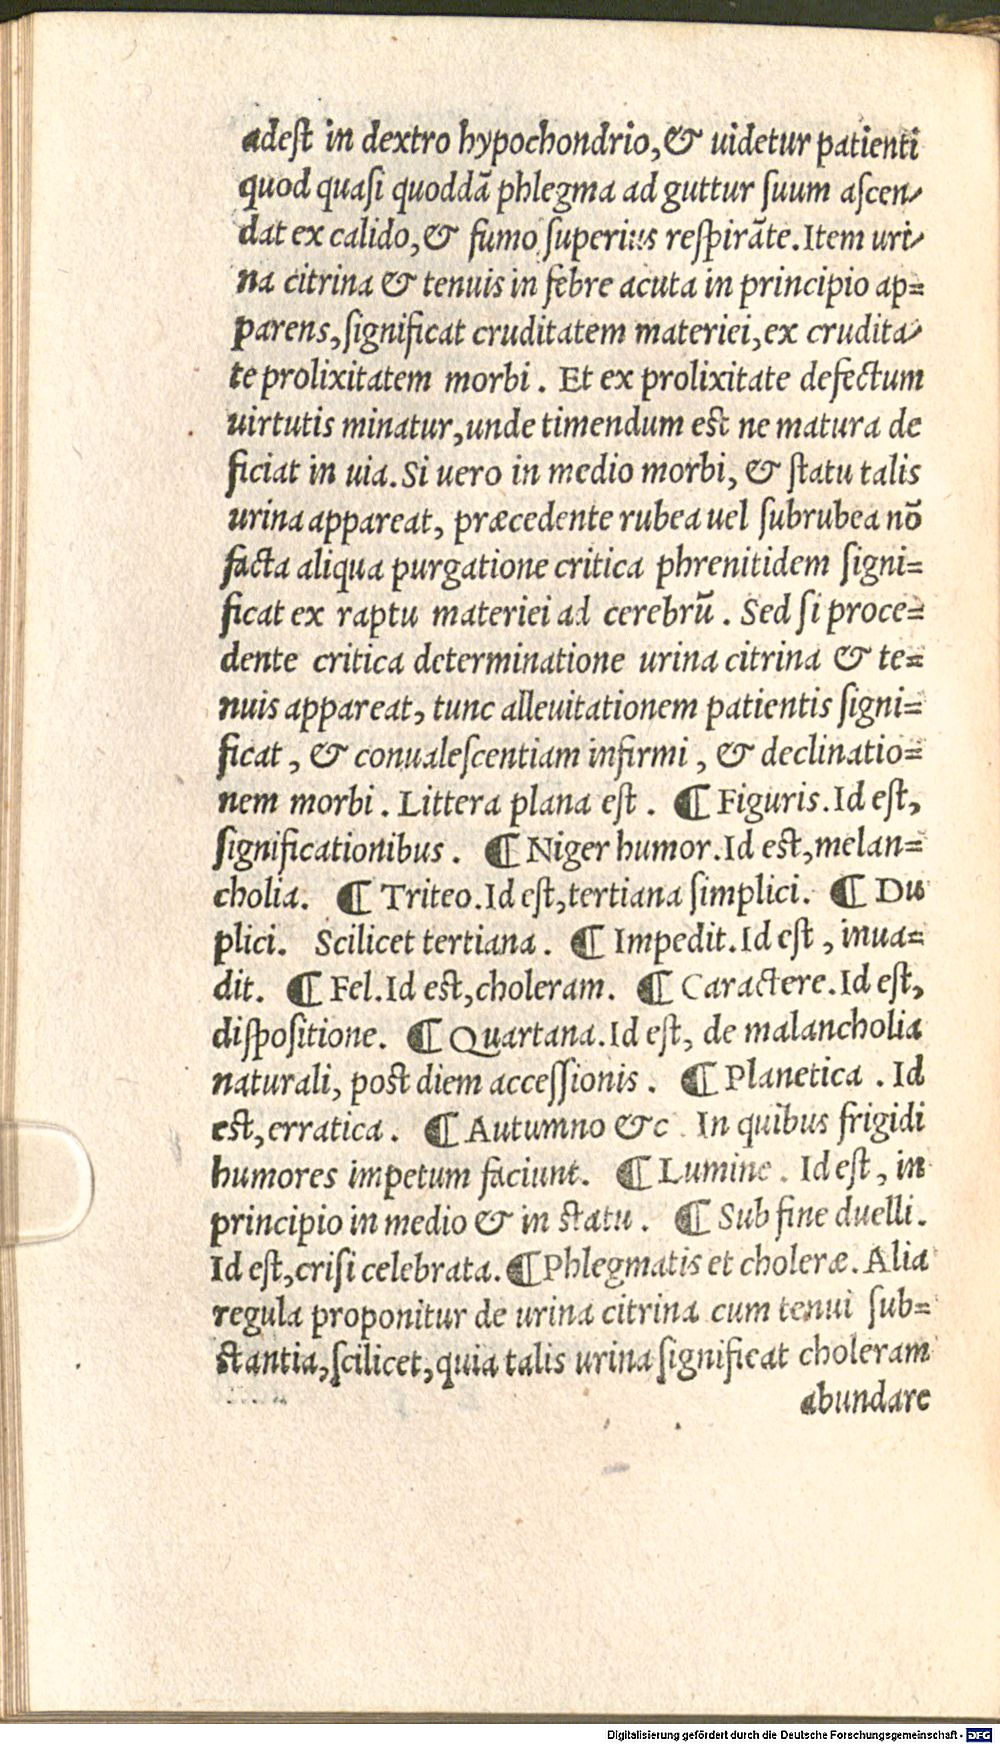 adeſt in dextro hypochondrio,& uidetur patienti
quod quaſi quoddã phlegma ad guttur ſuum aſcen-
dat ex calido,& fumo ſuperius reſpirãte. Item uri-
na citrina & tenuis in febre acuta in principio ap=
parens, ſignificat cruditatem materiei, ex crudita-
te prolixitatem morbi. Et ex prolixitate defectum
uirtutis minatur, unde timendum est ne matura de
ficiat in uia. Si uero in medio morbi, & ſtatu talis
urina appareat, præcedente rubea uel ſubrubea nõ
facta aliqua purgatione critica phrenitidem ſigni=
ficat ex raptu materiei ad cerebrũ. Sed ſi proce=
dente critica determinatione urina citrina & te=
nuis appareat, tunc alleuitationem patientis ſigni=
ficat, & conualeſcentiam infirmi, & declinatio=
nem morbi. Littera plana eſt. ¶ Figuris. Id eſt,
ſignificationibus. ¶ Niger humor. Id est, melan=
cholia. ¶ Triteo. Id eſt, tertiana ſimplici. ¶ Du
plici. Scilicet tertiana. ¶ Impedit. Id eſt, inua=
dit. ¶ Fel. Id est, choleram. ¶ Caractere. Id eſt,
diſpoſitione. ¶ Quartana. Id eſt, de malancholia
naturali, post diem acceſſionis. ¶ Planetica. Id
est, erratica. ¶ Autumno &c. In quibus frigidi
humores impetum faciunt. ¶ Lumine. Id eſt, in
principio in medio & in statu. ¶ Sub fine duelli.
Id eſt, criſi celebrata. ¶ Phlegmatis et choleræ. Alia
regula proponitur de urina citrina cum tenui ſub=
stantia, ſcilicet, quia talis urina ſignificat choleram
abundare
Digitalisierung gefördert durch die Deutsche Forschungsgemeinschaft - DFG